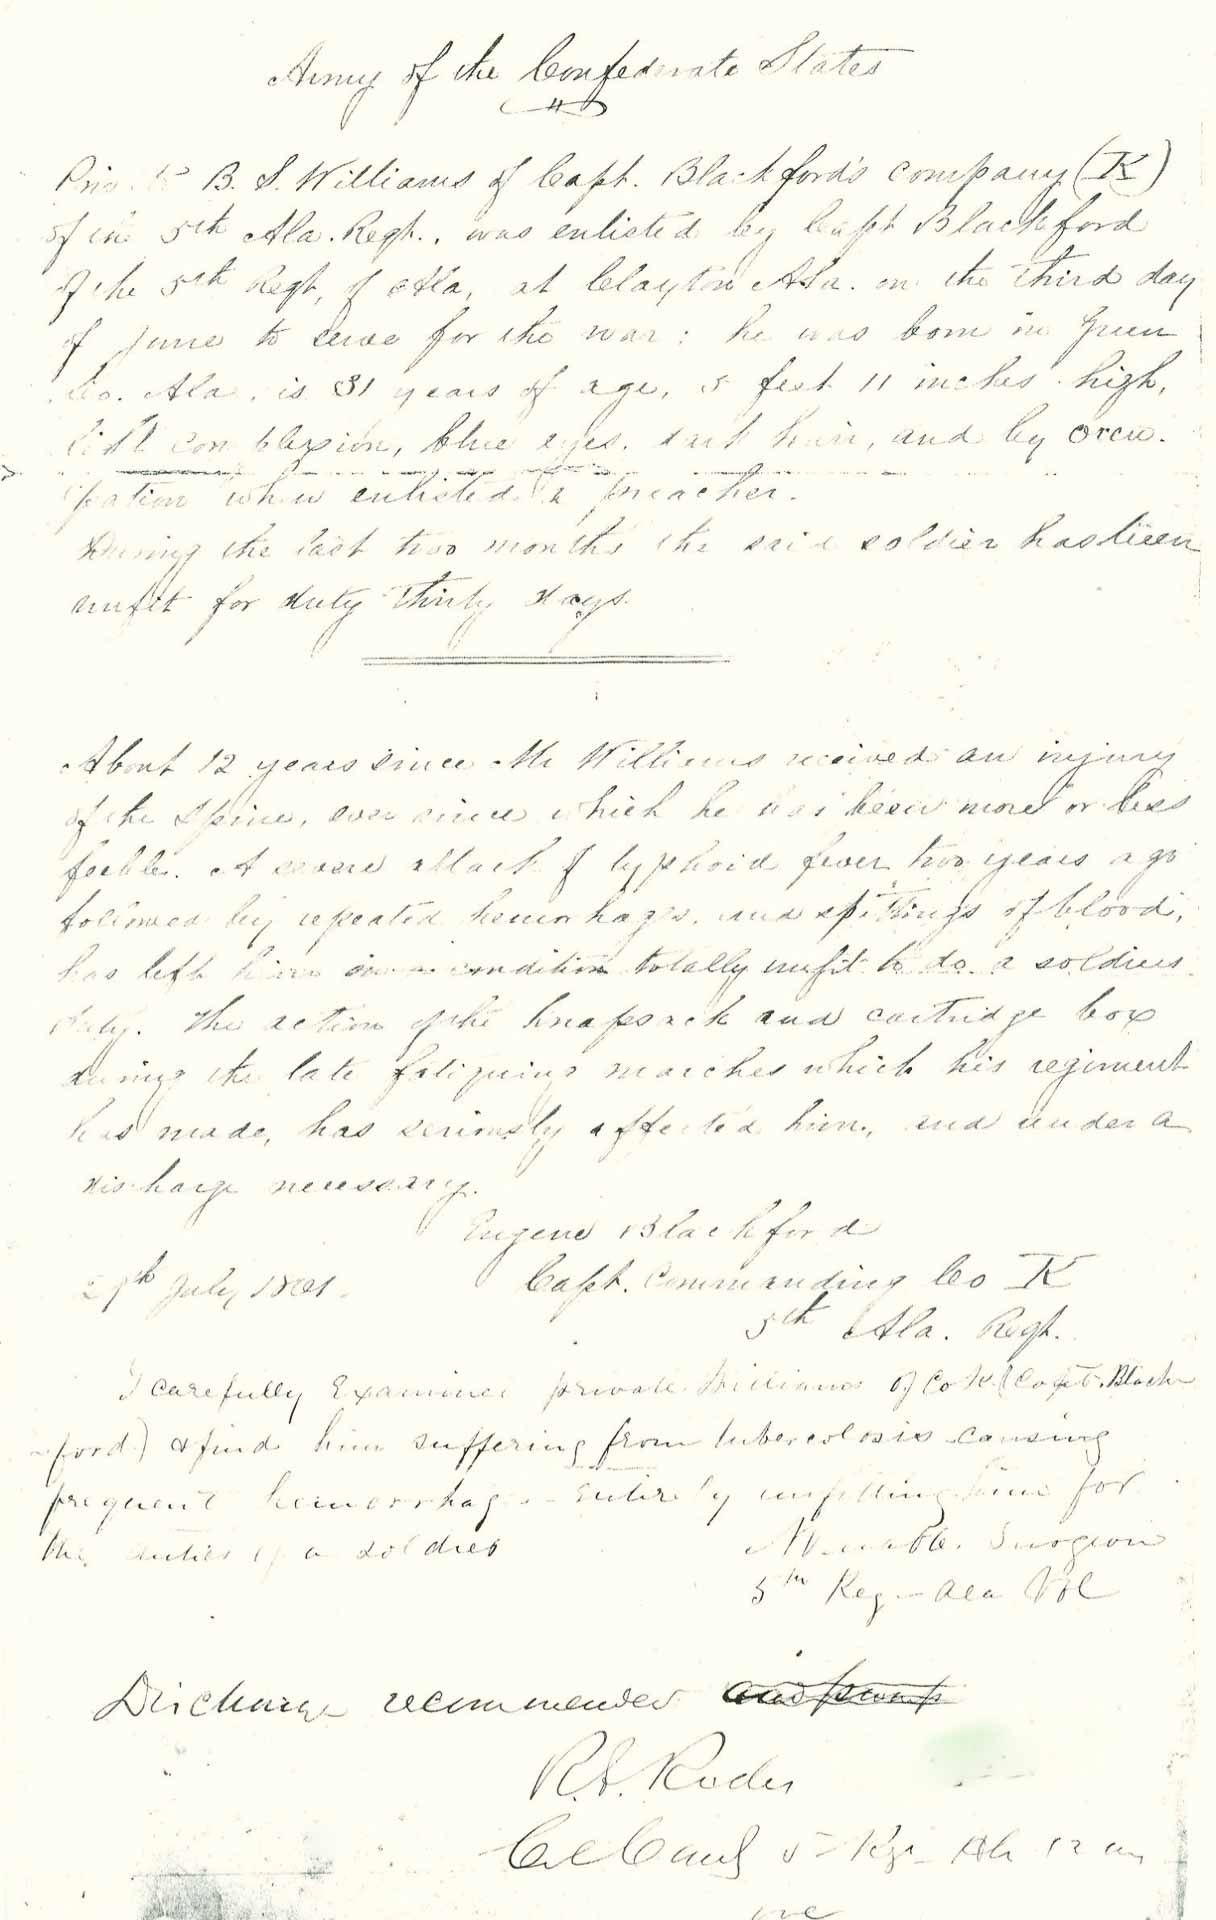 Army of the Confederate States
Private B. S. Williams of Capt. Blackford's company (K)
of the 5th Ala. Regt., was enlisted by Capt Blackford
of the 5th Regt, of Ala, at Clayton Ala. on the third day
of June to serve for the war: he was born in Green
Co. Ala, is 31 years of age, 5 feet 11 inches high,
light complexion, blue eyes, dark hair, and by occu-
pation when enlisted a preacher.
During the last two months the said soldier has been
unfit for duty thirty days.
About 12 years since Mr Williams received an injury
of the Spine, ever since which he has been more or less
feeble. A severe attack of typhoid fever two years ago
followed by repeated hemorhages, and spittings of blood,
has left him in a condition totally unfit to do a soldiers
duty. The action of the knapsack and cartridge box
during the late fatiguing marches which his regiment
has made, has seriously affected him, and render a
discharge necessary.
Eugene Blackford
29th July, 1861. Capt. Commanding Co K
5th Ala. Regt.
I carefully Examined private Williams of Co K (Capt. Black-
ford) & find him suffering from tubercolosis causing
frequent hemorrhage - Entirely unfitting him for
the duties of a soldier
Surgeon
5th Reg - Ala Vol
Discharge recommended
R. E. Rodes
Col Comdg 5 Regt Ala